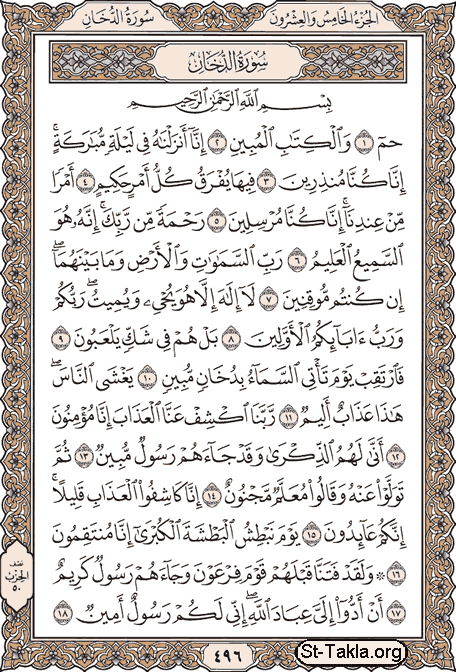 الجُزءُ الخَامِسُ وَالعِشْرُونَ سُورَةُ الدُّخَانِ
سُورَةُ الدُّخَانِ
بِسْمِ ٱللَّهِ ٱلرَّحْمَٰنِ ٱلرَّحِيمِ
حمٓ ١ وَٱلْكِتَٰبِ ٱلْمُبِينِ ٢ إِنَّآ أَنزَلْنَٰهُ فِى لَيْلَةٍ مُّبَٰرَكَةٍۚ
إِنَّا كُنَّا مُنذِرِينَ ٣ فِيهَا يُفْرَقُ كُلُّ أَمْرٍ حَكِيمٍ ٤ أَمْرًا
مِّنْ عِندِنَآۚ إِنَّا كُنَّا مُرْسِلِينَ ٥ رَحْمَةً مِّن رَّبِّكَۚ إِنَّهُۥ هُوَ
ٱلسَّمِيعُ ٱلْعَلِيمُ ٦ رَبِّ ٱلسَّمَٰوَٰتِ وَٱلْأَرْضِ وَمَا بَيْنَهُمَآۖ
إِن كُنتُم مُّوقِنِينَ ٧ لَآ إِلَٰهَ إِلَّا هُوَ يُحْىِۦ وَيُمِيتُۖ رَبُّكُمْ
وَرَبُّ ءَابَآئِكُمُ ٱلْأَوَّلِينَ ٨ بَلْ هُمْ فِى شَكٍّ يَلْعَبُونَ ٩
فَٱرْتَقِبْ يَوْمَ تَأْتِى ٱلسَّمَآءُ بِدُخَانٍ مُّبِينٍ ١٠ يَغْشَى ٱلنَّاسَۖ
هَٰذَا عَذَابٌ أَلِيمٌ ١١ رَّبَّنَا ٱكْشِفْ عَنَّا ٱلْعَذَابَ إِنَّا مُؤْمِنُونَ
١٢ أَنَّىٰ لَهُمُ ٱلذِّكْرَىٰ وَقَدْ جَآءَهُمْ رَسُولٌ مُّبِينٌ ١٣ ثُمَّ
تَوَلَّوْا۟ عَنْهُ وَقَالُوا۟ مُعَلَّمٌ مَّجْنُونٌ ١٤ إِنَّا كَاشِفُوا۟ ٱلْعَذَابِ قَلِيلًاۚ
إِنَّكُمْ عَآئِدُونَ ١٥ يَوْمَ نَبْطِشُ ٱلْبَطْشَةَ ٱلْكُبْرَىٰٓ إِنَّا مُنتَقِمُونَ
١٦ ۞ وَلَقَدْ فَتَنَّا قَبْلَهُمْ قَوْمَ فِرْعَوْنَ وَجَآءَهُمْ رَسُولٌ كَرِيمٌ
١٧ أَنْ أَدُّوٓا۟ إِلَىَّ عِبَادَ ٱللَّهِۖ إِنِّى لَكُمْ رَسُولٌ أَمِينٌ ١٨
نصف
الحزب
٥٠
٤٩٦
St-Takla.org